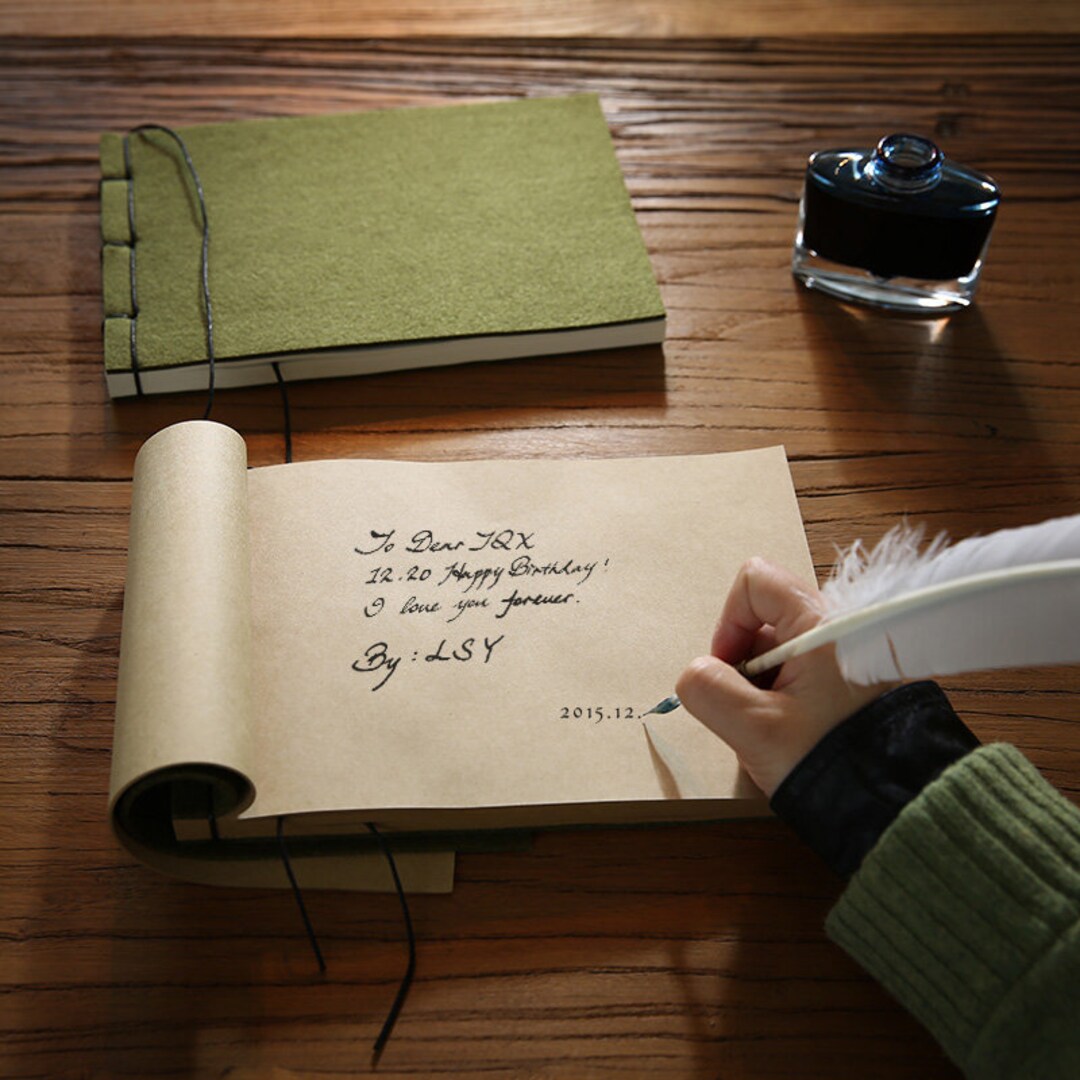 To Dear TQX
12.20 Happy Birthday!
I love you forever.
By: LSY
2015.12.